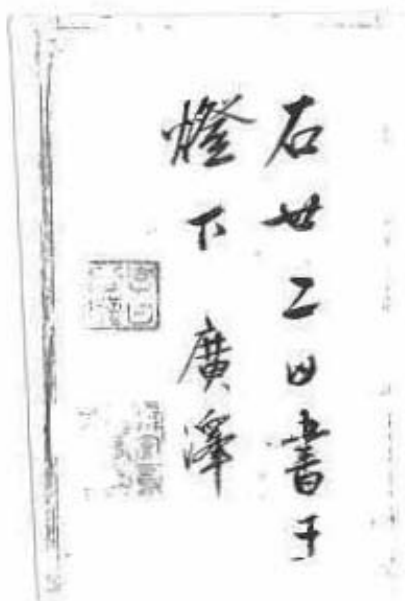 右廿二日書于
燈下 廣澤